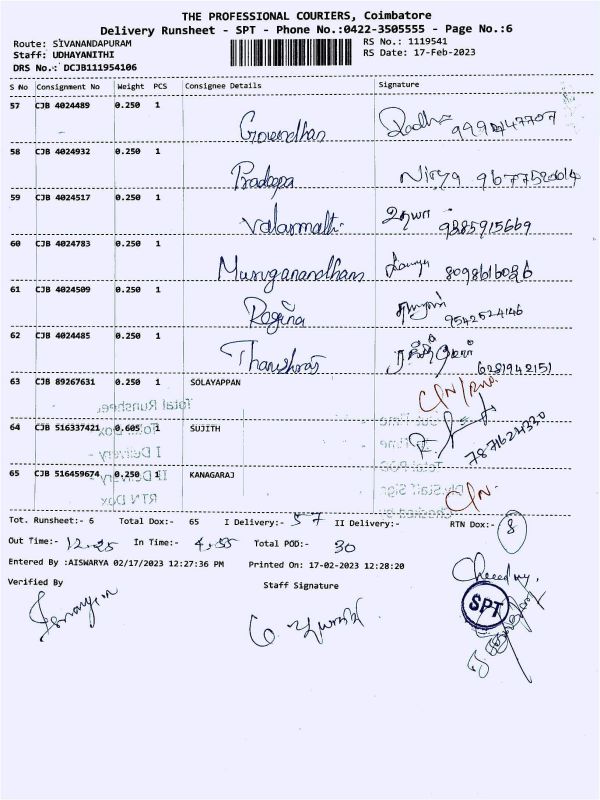 THE PROFESSIONAL COURIERS, Coimbatore
Delivery Runsheet - SPT - Phone No.:0422-3505555 - Page No.:6
Route: SIVANANDAPURAM RS No.: 1119541
Staff: UDHAYANITHI RS Date: 17-Feb-2023
DRS No.: DCJB111954106
S No Consignment No Weight PCS Consignee Details Signature
57 CJB 4024489 0.250 1
58 CJB 4024932 0.250 1 Pradeepa Nitya
59 CJB 4024517 0.250 1 Valarmathi உதயா 9885915669
60 CJB 4024783 0.250 1 Muruganandham
61 CJB 4024509 0.250 1 Regina 9542524146
62 CJB 4024485 0.250 1 6281942151
63 CJB 89267631 0.250 1 SOLAYAPPAN
64 CJB 516337421 0.605 1 SUJITH 7871624330
65 CJB 516459674 0.250 1 KANAGARAJ
Tot. Runsheet:- 6 Total Dox:- 65 I Delivery:- 57 II Delivery:- RTN Dox:- 8
Out Time:- 12.25 In Time:- 4.55 Total POD:- 30
Entered By :AISWARYA 02/17/2023 12:27:36 PM Printed On: 17-02-2023 12:28:20
Verified By Staff Signature
SPT